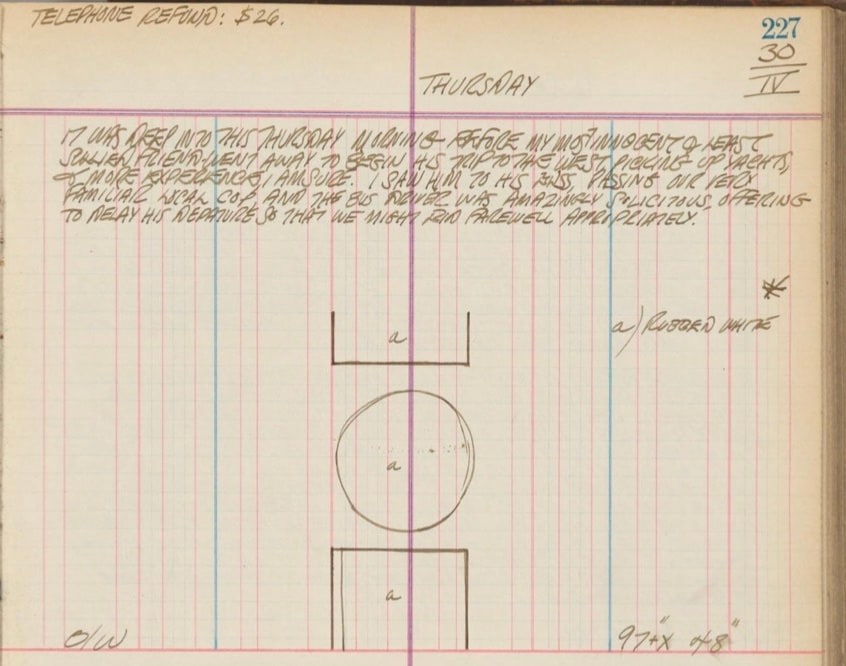 TELEPHONE REFUND: $26.
227
30
IV
THURSDAY
IT WAS DEEP INTO THIS THURSDAY MORNING BEFORE MY MOST INNOCENT & LEAST
SULLIED FRIEND WENT AWAY TO BEGIN HIS TRIP TO THE WEST PICKING UP YACHTS,
& MORE EXPERIENCE, I AM SURE. I SAW HIM TO HIS BUS, PASSING OUR VERY
FAMILIAR LOCAL COP, AND THE BUS DRIVER WAS AMAZINGLY SOLICITOUS, OFFERING
TO DELAY HIS DEPARTURE SO THAT WE MIGHT BID FAREWELL APPROPRIATELY.
*
a
a) RUBBED WHITE
a
a
O/W
97+X 48"